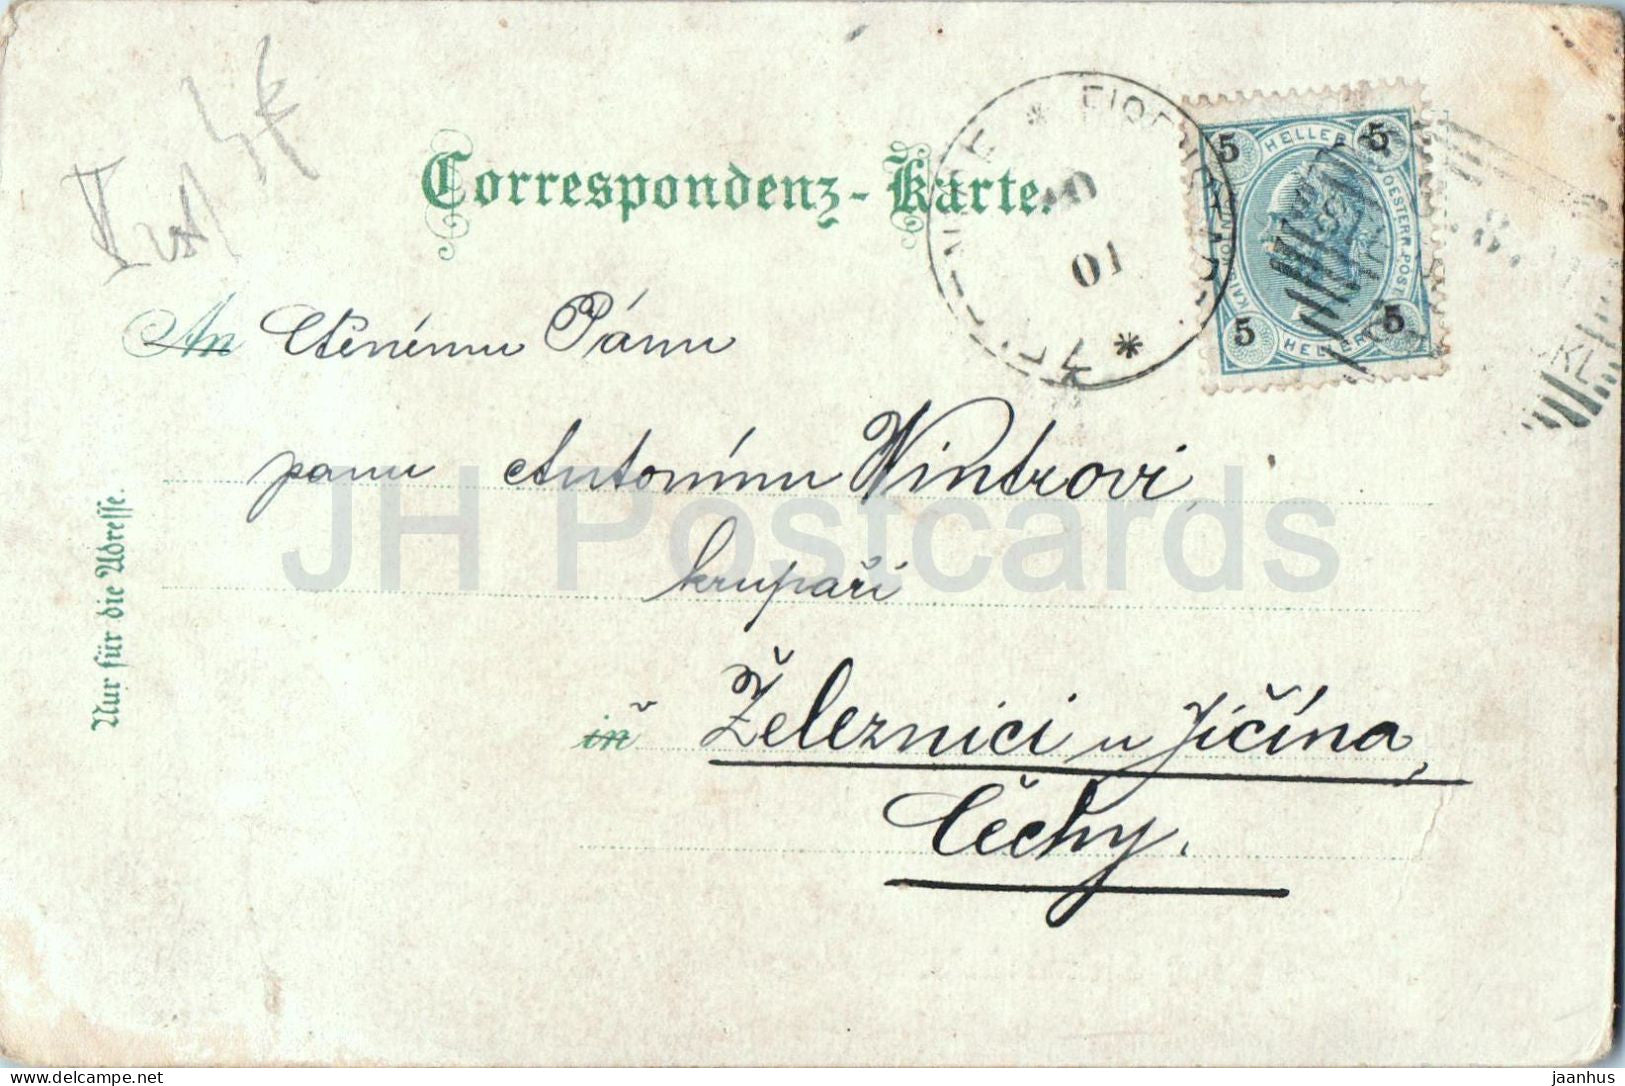 Correspondenz-Karte.
5 HELLER 5
KAIS. KÖN. OESTERR. POST.
5 HELLER 5
01
An Ctěnému Pánu
panu Antonínu Wintrovi
krupaři
in v Železnici u Jičína,
Čechy.
Nur für die Adresse.
JH Postcards
jaanhus
www.delcampe.net